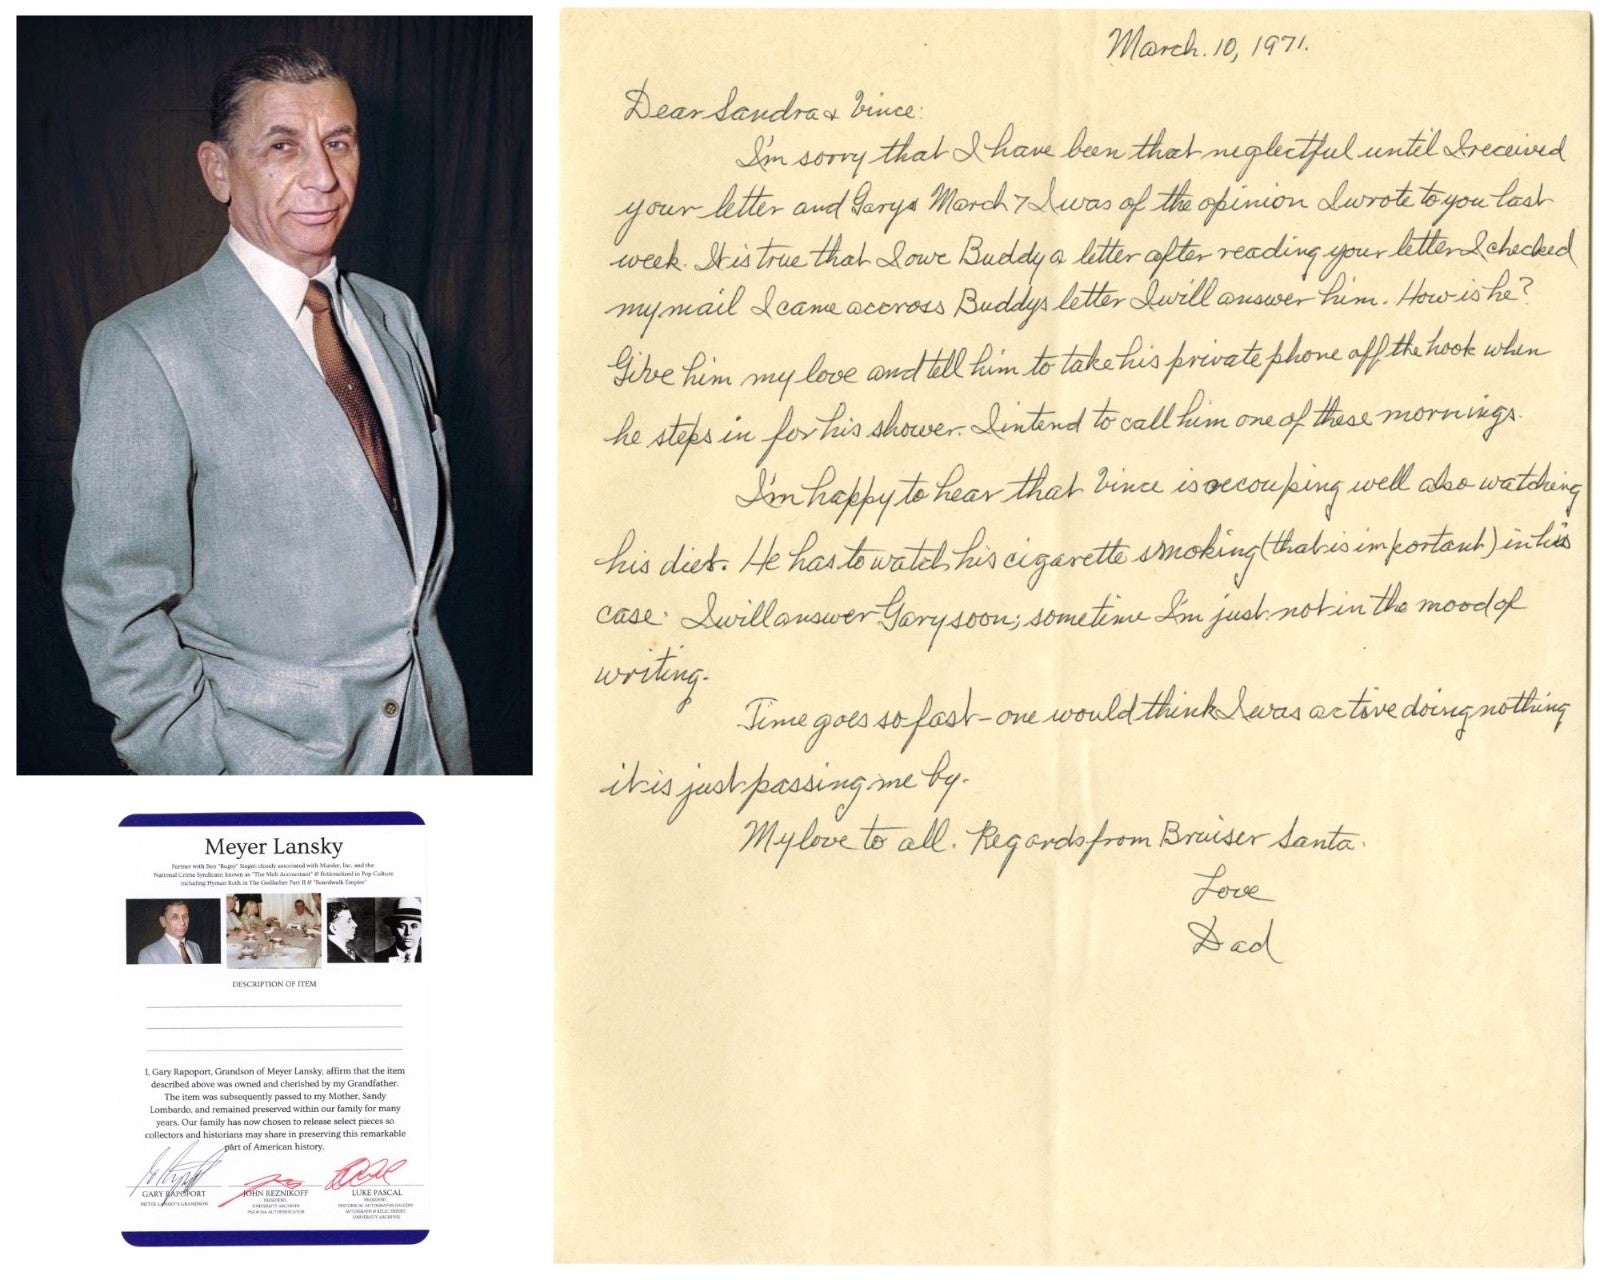 March. 10, 1971.
Dear Sandra & Vince:
I'm sorry that I have been that neglectful until I received
your letter and Garys March 7 I was of the opinion I wrote to you last
week. It is true that I owe Buddy a letter after reading your letter I checked
my mail I came accross Buddys letter I will answer him. How is he?
Give him my love and tell him to take his private phone off the hook when
he steps in for his shower. I intend to call him one of these mornings.
I'm happy to hear that Vince is recouping well also watching
his diet. He has to watch his cigarette smoking (that is important) in his
case. I will answer Gary soon; sometime I'm just not in the mood of
writing.
Time goes so fast - one would think I was active doing nothing
it is just passing me by.
My love to all. Regards from Bruiser Santa.
Love
Dad
Meyer Lansky
Partner with Ben "Bugsy" Siegel; closely associated with Murder, Inc. and the
National Crime Syndicate; known as "The Mob Accountant" & fictionalized in Pop Culture
including Hyman Roth in The Godfather Part II & "Boardwalk Empire"
DESCRIPTION OF ITEM
I, Gary Rapoport, Grandson of Meyer Lansky, affirm that the item
described above was owned and cherished by my Grandfather.
The item was subsequently passed to my Mother, Sandy
Lombardo, and remained preserved within our family for many
years. Our family has now chosen to release select pieces so
collectors and historians may share in preserving this remarkable
part of American history.
GARY RAPOPORT
MEYER LANSKY'S GRANDSON
JOHN REZNIKOFF
PRESIDENT,
UNIVERSITY ARCHIVES
PSA & JSA AUTHENTICATOR
LUKE PASCAL
PRESIDENT,
HISTORICAL AUTOGRAPHS GALLERY
AUTOGRAPH & RELIC EXPERT,
UNIVERSITY ARCHIVES